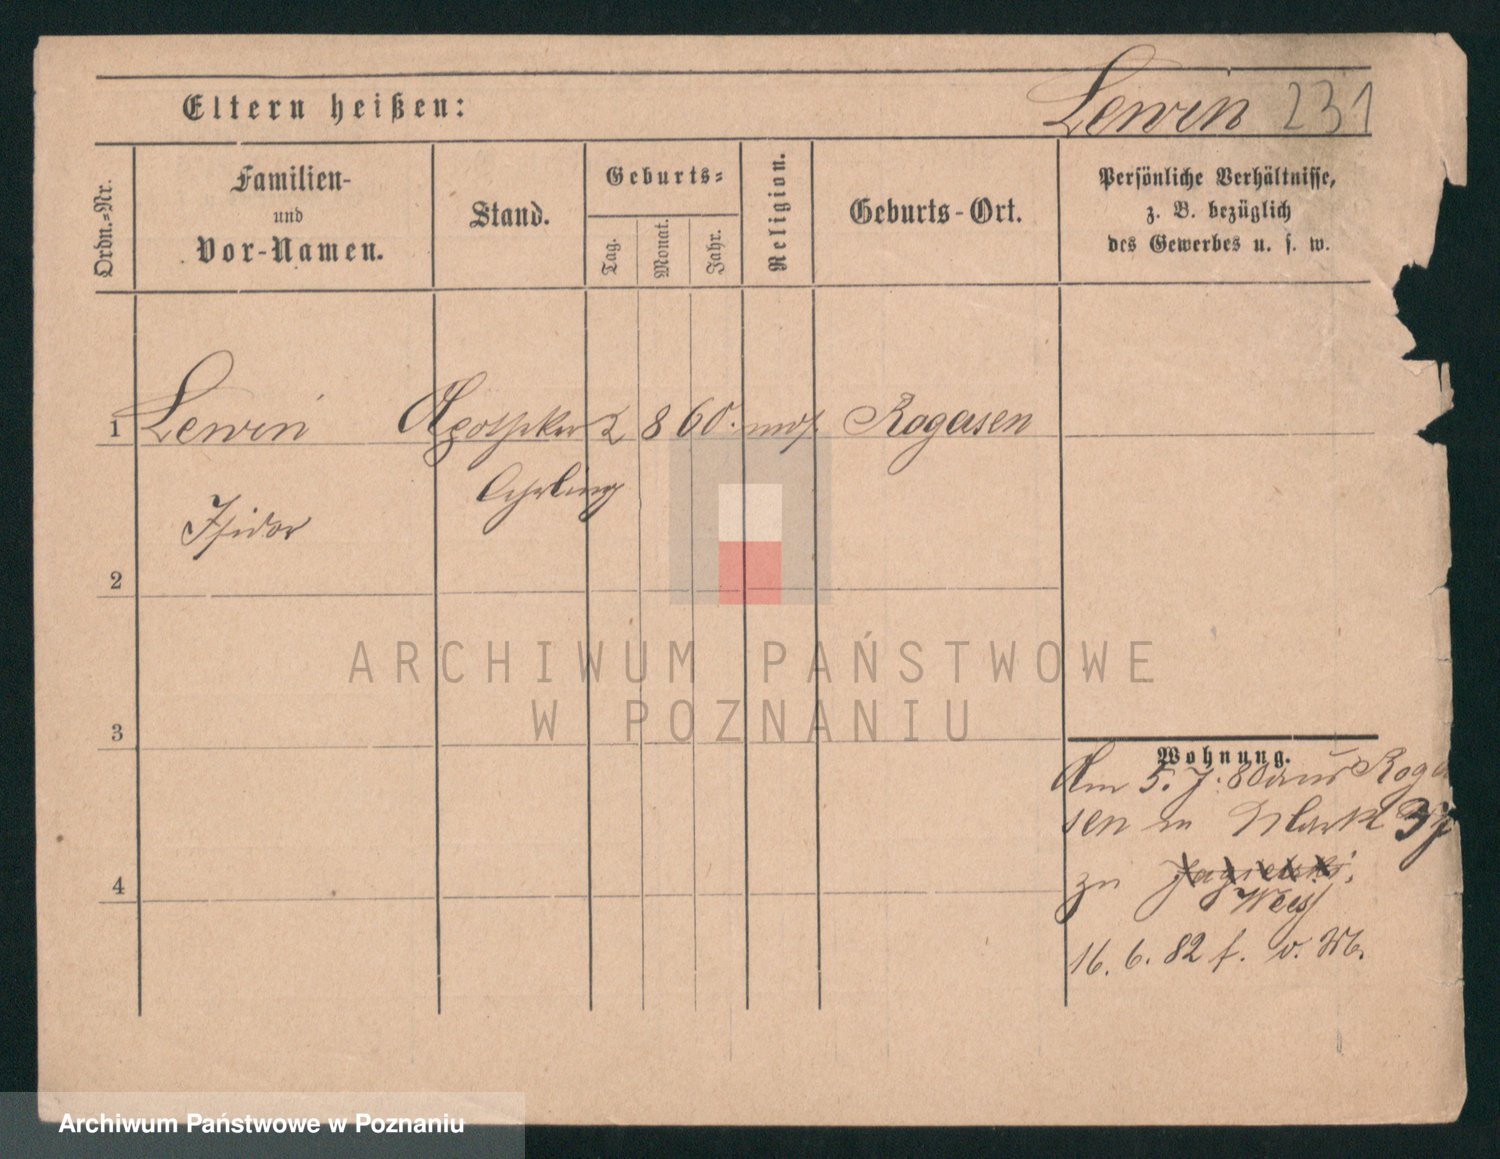 Eltern heißen:
Lewin 231
Ordn.-Nr.
Familien-
und
Vor-Namen.
Stand.
Geburts-
Tag.
Monat.
Jahr.
Religion.
Geburts-Ort.
Persönliche Verhältnisse,
z. B. bezüglich
des Gewerbes u. s. w.
1 Lewin Apotheker 2 8 60. mos Rogasen
Lehrling
Isidor
2
ARCHIWUM PAŃSTWOWE
W POZNANIU
3
Wohnung.
Am 5. 7. 80 aus Roga
sen n Markt 37
4
zu Jagielski
16. 6. 82 f. v. M.
Archiwum Państwowe w Poznaniu